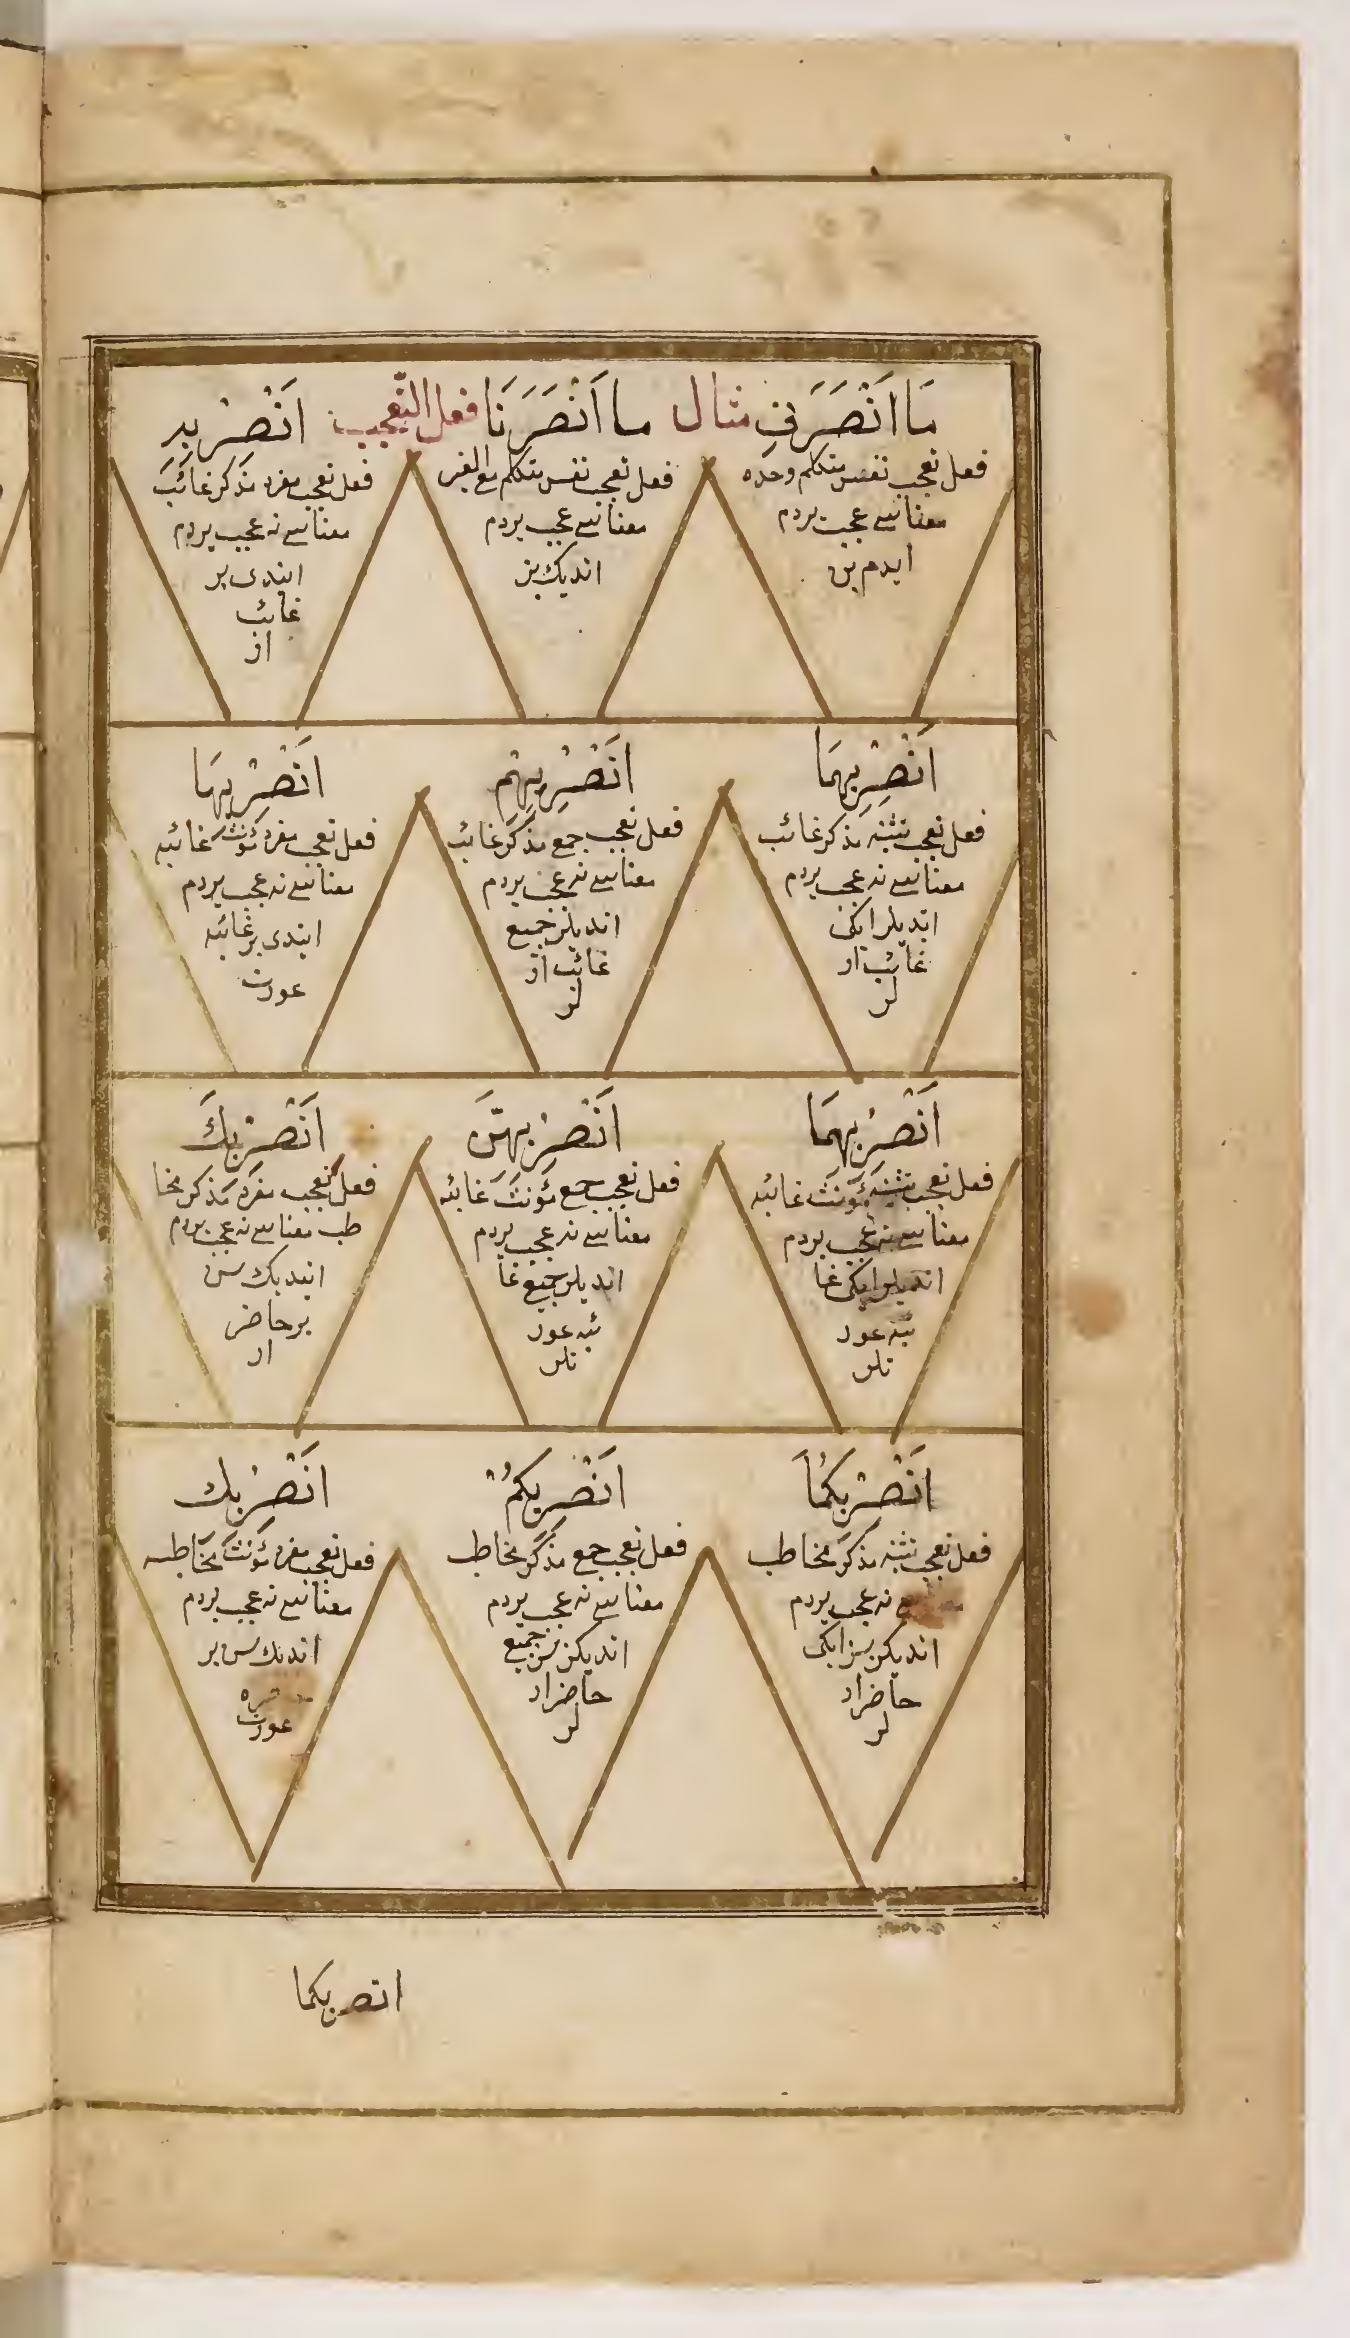 مَا اَنْصَرَنِي مثال ما اَنْصَرَنَا فعل التّعجب اَنْصِرْ بِهِ
فعل تعجب نفس متكلم وحده
معناسى عجب يردم
ايدم بن
فعل تعجب نفس متكلم مع الغير
معناسى عجب يردم
اندیك بز
فعل تعجب مفرد مذكر غائب
معناسى نه عجب يردم
ايندى بر
غائب
ار
اَنْصِرْ بِهِمَا
فعل تعجب تثنيه مذكر غائب
معناسى نه عجب يردم
انديلر ايكى
غائب ار
لر
اَنْصِرْ بِهِمْ
فعل تعجب جمع مذكر غائب
معناسى نه عجب يردم
انديلر جميع
غائب ار
لر
اَنْصِرْ بِهَا
فعل تعجب مفرد مؤنث غائبه
معناسى نه عجب يردم
ايندى بر غائبه
عورت
اَنْصِرْ بِهِمَا
فعل تعجب تثنيه مؤنث غائبه
معناسى نه عجب يردم
انديلر ايكى غا
ئبه عور
تلر
اَنْصِرْ بِهِنَّ
فعل تعجب جمع مؤنث غائبه
معناسى نه عجب يردم
انديلر جميع غا
ئبه عور
تلر
اَنْصِرْ بِكَ
فعل تعجب مفرد مذكر مخا
طب معناسى نه عجب يردم
انيدیك سن
بر حاضر
ار
اَنْصِرْ بِكُمَا
فعل تعجب تثنيه مذكر مخاطب
نه عجب يردم
انديكز سز ايكى
حاضر ار
لر
اَنْصِرْ بِكُمْ
فعل تعجب جمع مذكر مخاطب
معناسى نه عجب يردم
انديكز سز جميع
حاضر ار
لر
اَنْصِرْ بِك
فعل تعجب مفرد مؤنث مخاطبه
معناسى نه عجب يردم
اندیك سن بر
عورت
انصر بكما